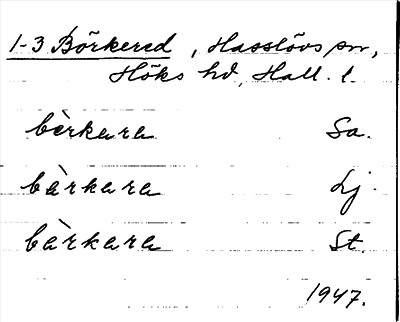 1-3 Börkered, Hasslövs sn,
Höks hd, Hall. l.
bèrkara Sa.
bàrkara Lj.
bàrkara St.
1947.